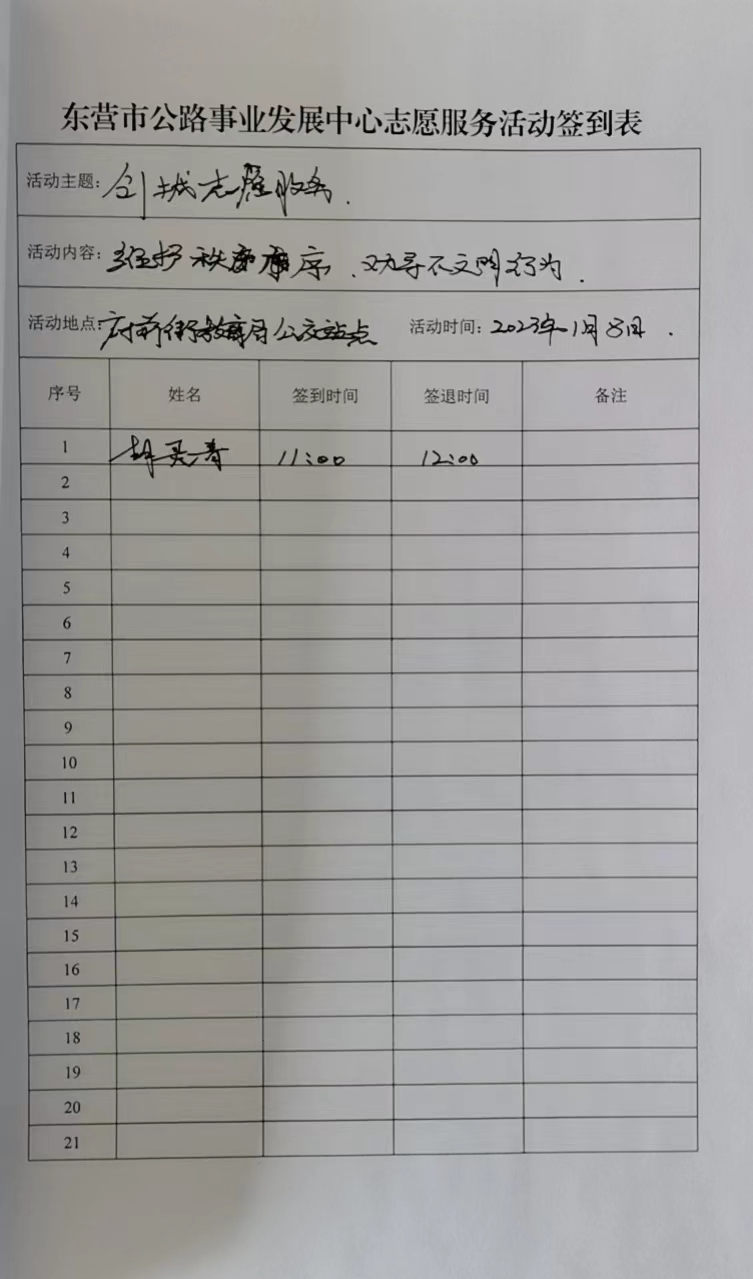 东营市公路事业发展中心志愿服务活动签到表
活动主题: 创城志愿服务.
活动内容: 维护秩序、劝导不文明行为.
活动地点: 府前街教育局公交站点 活动时间: 2023年1月8日.
序号 姓名 签到时间 签退时间 备注
1 11:00 12:00
2
3
4
5
6
7
8
9
10
11
12
13
14
15
16
17
18
19
20
21